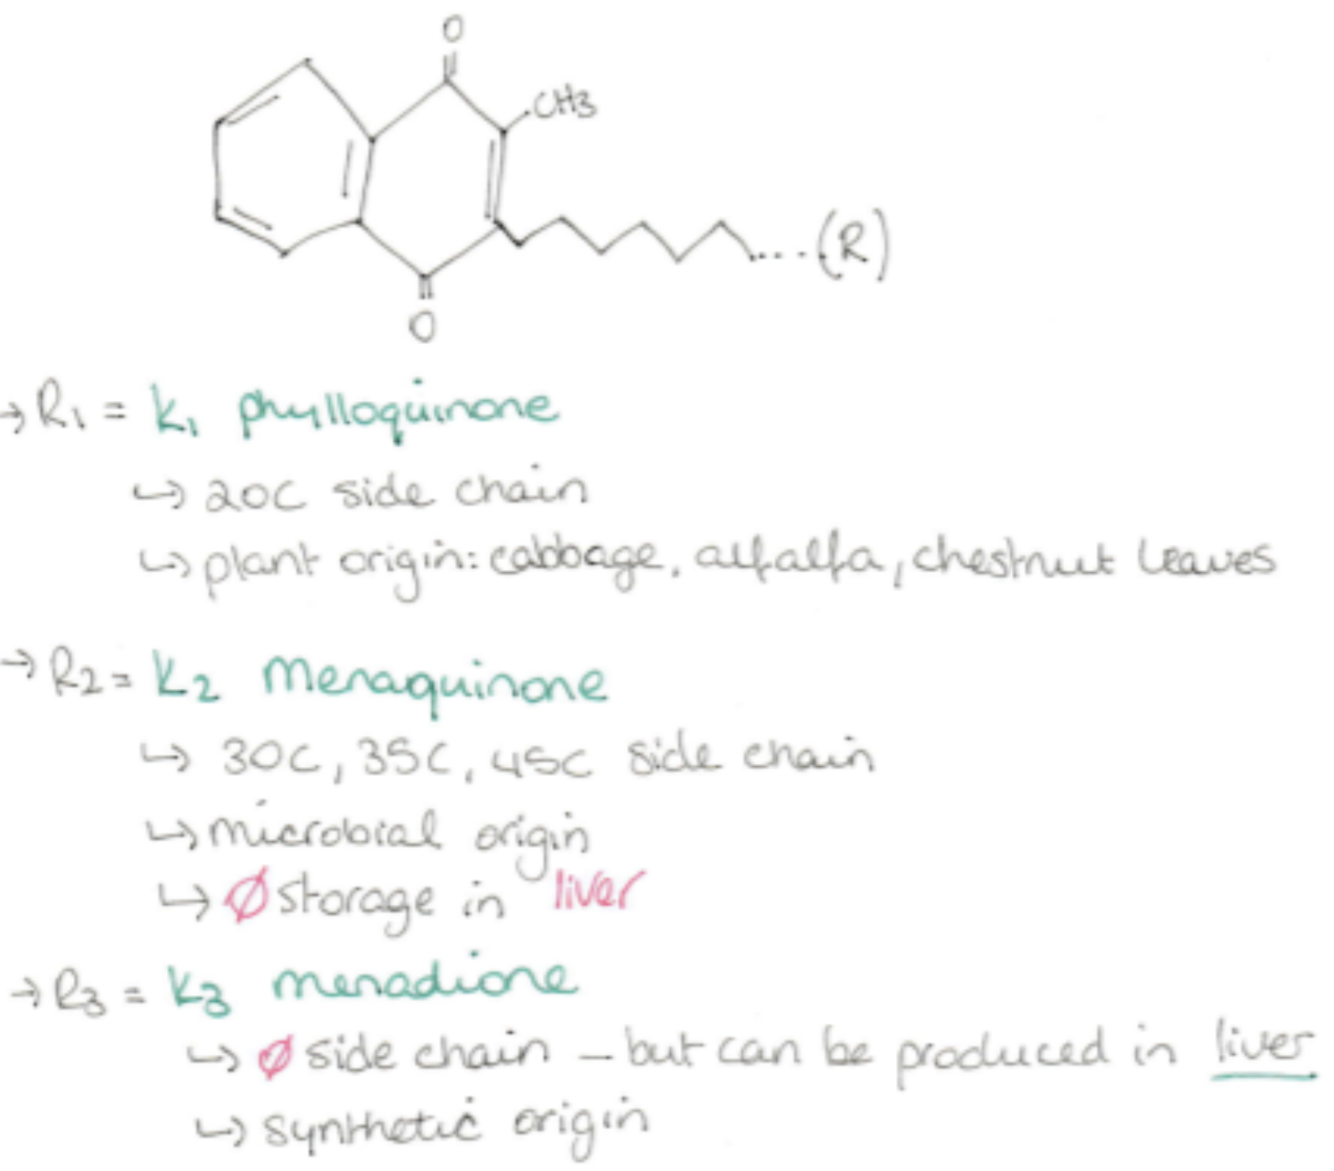 O
CH3
....(R)
O
→ R1 = K1 phylloquinone
↳ 20C side chain
↳ plant origin: cabbage, alfalfa, chestnut leaves
→ R2 = K2 Menaquinone
↳ 30C, 35C, 45C side chain
↳ microbial origin
↳ Ø storage in liver
→ R3 = K3 menadione
↳ Ø side chain – but can be produced in liver
↳ synthetic origin